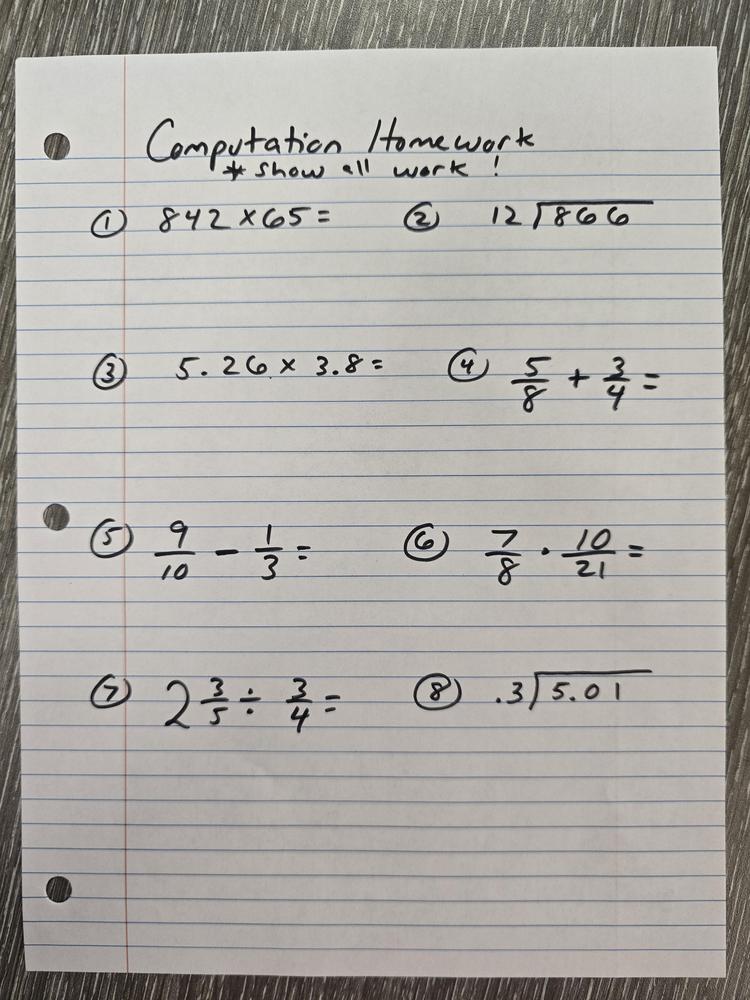 Computation Homework
* show all work !
① 842 × 65 = ② 12⟌866
③ 5.26 × 3.8 = ④ 5/8 + 3/4 =
⑤ 9/10 - 1/3 = ⑥ 7/8 · 10/21 =
⑦ 2 3/5 ÷ 3/4 = ⑧ .3⟌5.01